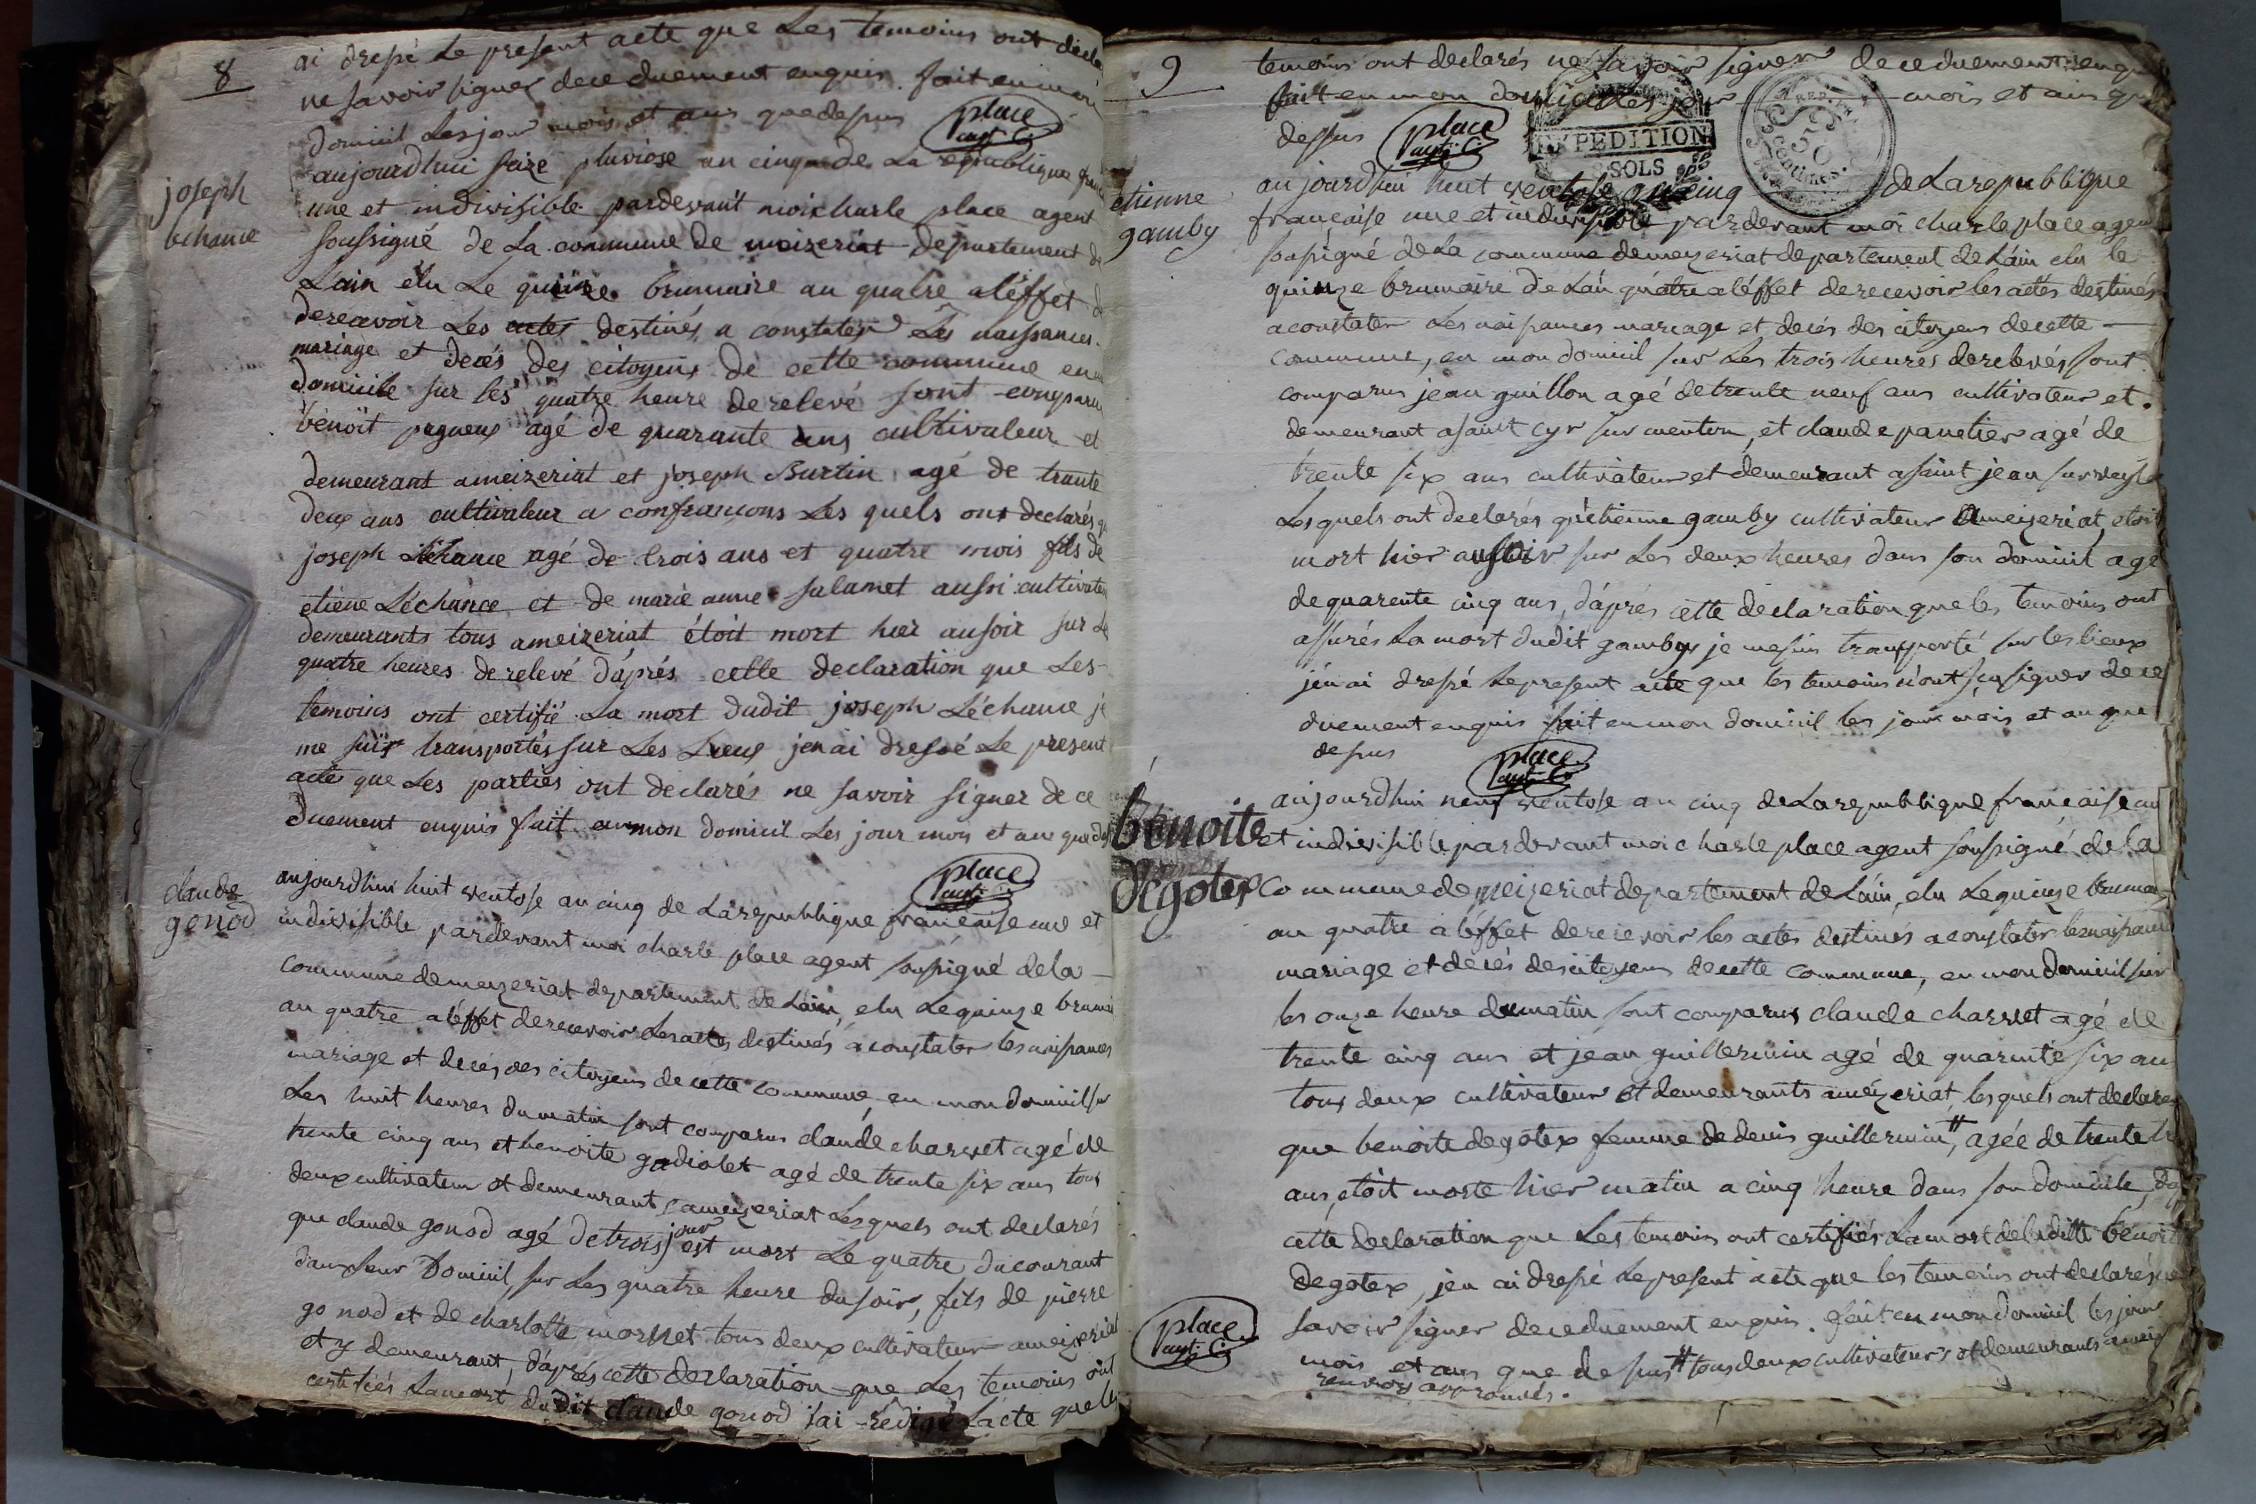 8
ai dressé Le present acte que Les temoins ont decla
ne savoir signer dece duement enquis. fait en mon
domicil Les jour mois et ans que dessus
place
agt. C.
joseph
lechance
aujourdhui seize pluviose an cinq de La republique fran
une et indivisible pardevant moi charle place agent
soussigné de La commune de meizeriat departement de
Lain élu Le quinze brumaire an quatre a l'éffet d
derecevoir Les actes destinés a constater Les naissances
mariage et decés des citoyens de cette commune en
domicile sur les quatre heure de relevé sont comparu
benoit pagneux agé de quarante ans cultivateur et
demeurant ameizeriat et joseph Burtin agé de trante
deux ans cultivateur a confrancons Les quels ont declarés q
joseph léchance agé de trois ans et quatre mois fils de
etiene Léchance et de marie anne salamet aussi cultivate
demeurants tous ameizeriat étoit mort hier ausoir sur Le
quatre heures de relevé daprés cette declaration que Les
temoins ont certifié La mort dudit joseph Léchance je
me suis transportés sur Les Lieux jenai dressé Le present
acte que Les parties ont declarés ne savoir signer de ce
duement enquis fait en mon domicil Les jour mois et an que des
place
agt. C.
claude
gonod
aujourdhui huit ventose an cinq de Larepublique francaise une et
indivisible pardevant moi charle place agent soussigné dela
commune demeyzeriat departement de Lain, elu Lequinze brumai
an quatre a l'éffet derecevoir Les actes destinés a constater les naissances
mariage et decés des citoyens de cette commune, en mon domicil sur
Les huit heures du matin sont comparus claude charvet agé de
trente cinq ans et benoite gadiolet agé de trente six ans tous
deux cultivateur et demeurant ameyzeriat Lesquels ont declarés
que claude gonod agé de trois jour est mort Le quatre du courant
dans leur Domicil, sur Les quatre heure du soir, fils de pierre
gonod et de charlotte morsset tous deux cultivateur ameizeriat
et y demeurant, d'aprés cette declaration que Les temoins ont
certifiés La mort du Dit claude gonod jai rédigé Lacte que les
9
temoins ont declarés ne savoir signer de ce duement enqu
fait en mon domicil les jour mois et ans que
dessus
place
agt. C.
EXPEDITION
SOLS
REP. FRA.
50
centimes
etienne
gamby
aujourdhui huit ventose an cinq de Larepublique
française une et indivisible pardevant moi charle place agen
soussigné de La commune demeyzeriat departement de Lain elu le
quinze brumaire de Lan quatre a l'éffet derecevoir les actes destinés
aconstater Les naissances mariage et decés des citoyens decette
commune, en mon domicil sur Les trois heures de relevés sont
comparus jean guillon agé de trente neuf ans cultivateur et
demeurant asaint cyr sur menton, et claude panetier agé de
trente six ans cultivateur et demeurant asaint jean sur veyle
Lesquels ont declarés qu'etienne gamby cultivateur Ameizeriat, etoit
mort hier ausoir sur Les deux heures dans son domicil agé
de quarente cinq ans, d'aprés cette declaration que les temoins ont
assurés La mort dudit gamby je me suis transporté sur les lieux
j'én ai dressé Le present acte que les temoins n'ont sçu signer de ce
duement enquis fait en mon domicil les jour mois et an que
dessus
place
agt. C.
bénoite
dégotex
aujourdhui neuf ventose an cinq de Larepublique francaise un
et indivisible pardevant moi charle place agent soussigné de la
commune de meizeriat departement de Lain, elu Lequinze brumai
an quatre a l'éffet derecevoir les actes destinés aconstater lesnaissance
mariage et decés des citoyens decette commune, en mon domicil sur
les onze heure dumatin sont comparus claude charvet agé de
trente cinq ans et jean guillermin agé de quarente six an
tous deux cultivateur et demeurants améyzeriat, lesquels ont declare
que benoite degotex femme de denis guillermin #, agée de trente tr
ans, etoit morte hier matin a cinq heure dans son domicile, dap
cette declaration que Les temoins ont certifiés La mort deladitte benoit
degotex, jen ai dressé Le present acte que les temoins ont declarés ne
savoir signer dece duement enquis. fait en mon domicil les jour
mois et ans que dessus # tous deux cultivateurs et demeurants ameiz
renvois approuvés.
place
agt. C.